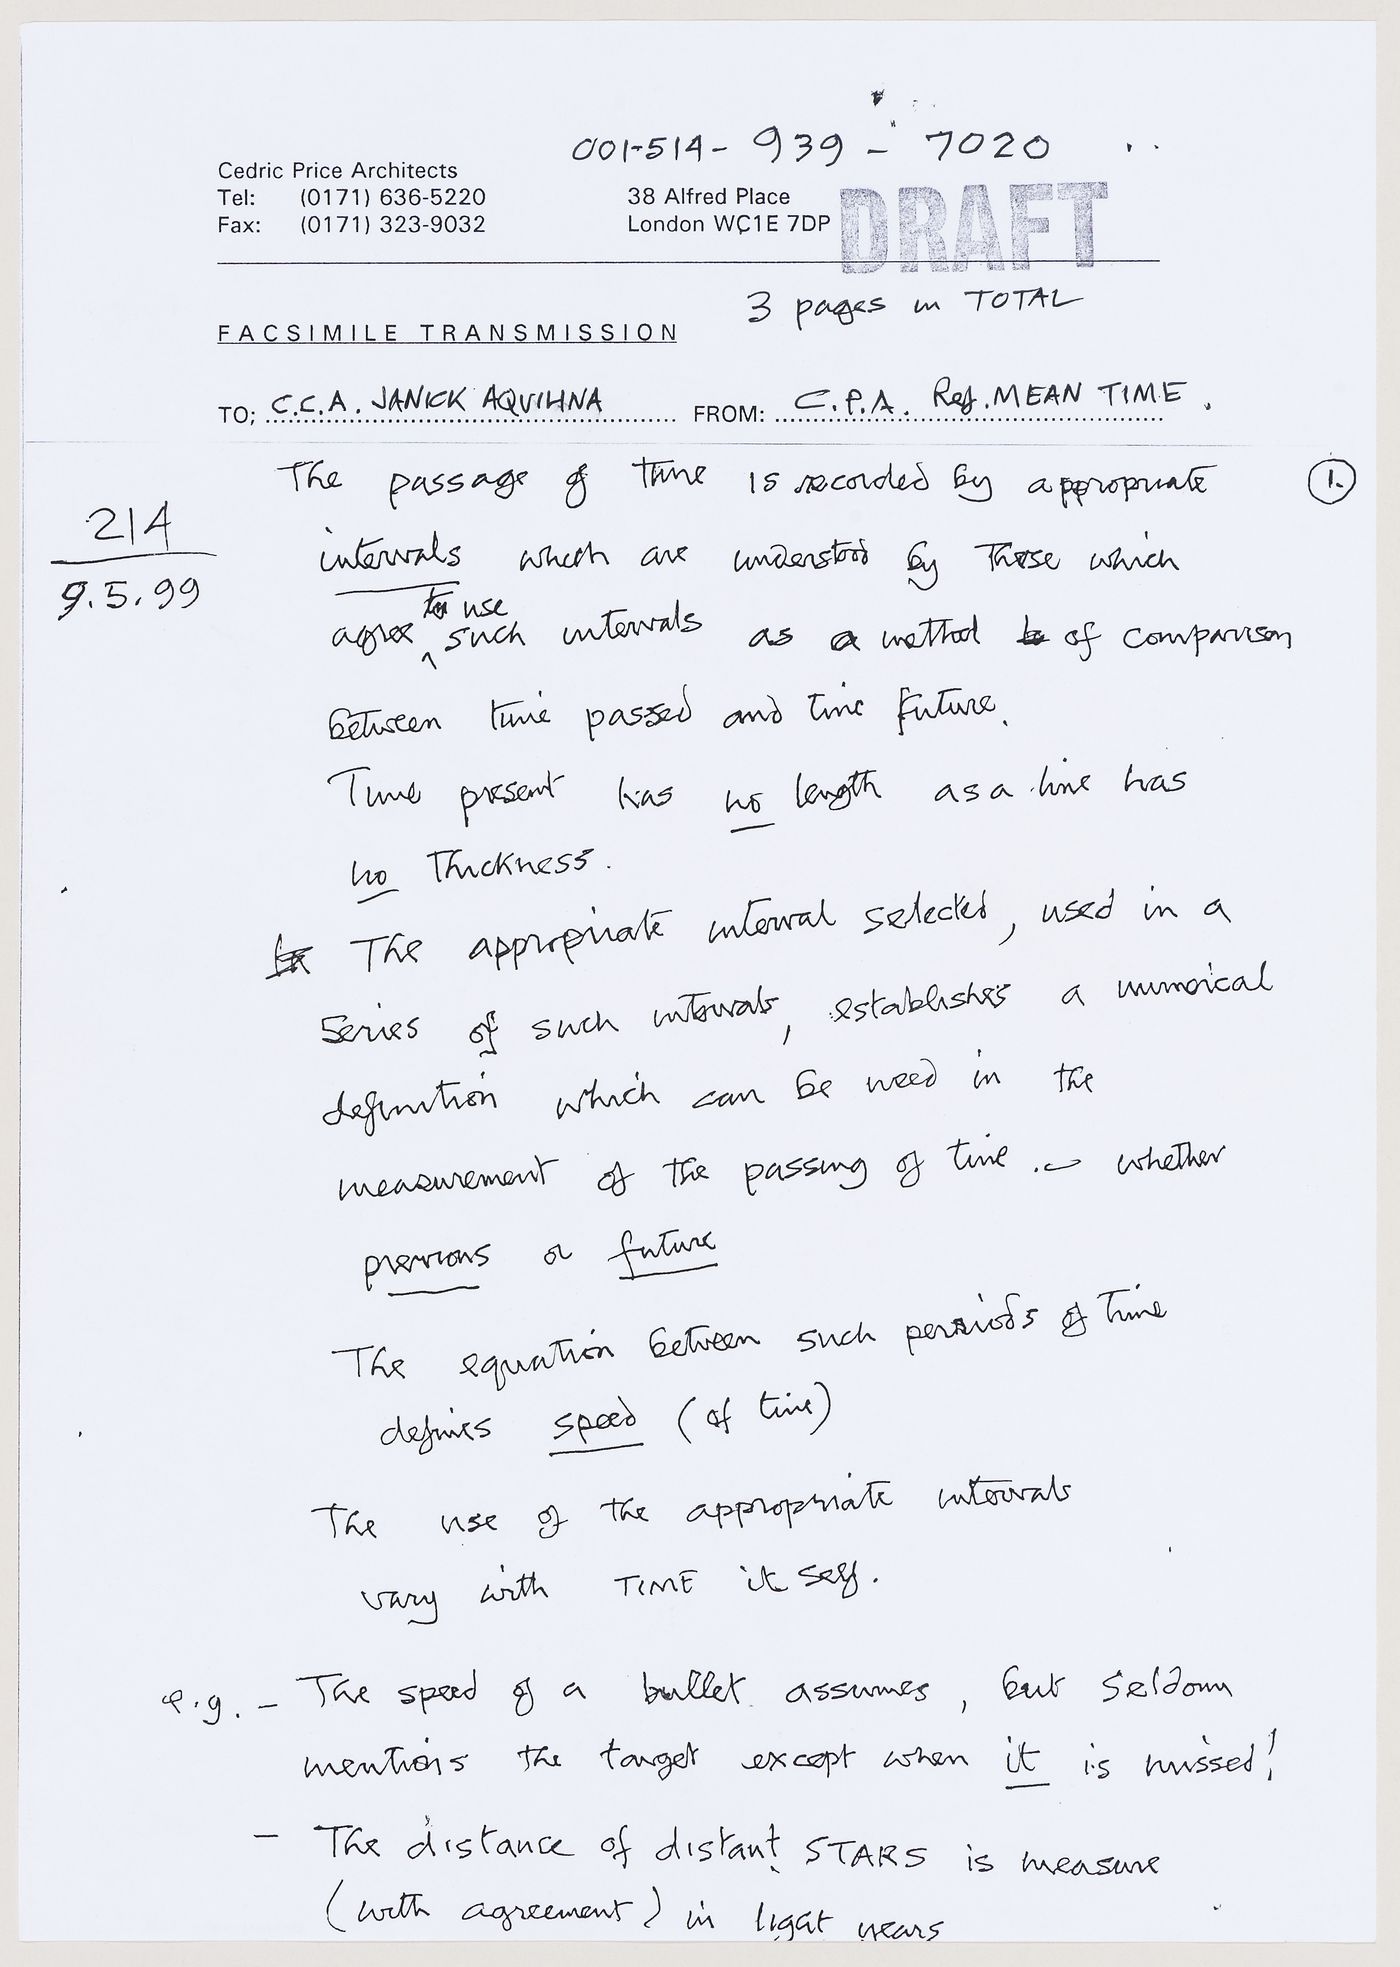 001-514-939-7020
Cedric Price Architects
Tel: (0171) 636-5220
Fax: (0171) 323-9032
38 Alfred Place
London WC1E 7DP
DRAFT
3 pages in TOTAL
FACSIMILE TRANSMISSION
TO; C.C.A. JANICK AQUILINA FROM: C.P.A. Ref. MEAN TIME.
1.
214
9.5.99
The passage of time is recorded by appropriate
intervals which are understood by those which
agree to use such intervals as a method of comparison
between time passed and time future.
Time present has no length as a line has
no thickness.
The appropriate interval selected, used in a
series of such intervals, establishes a numerical
definition which can be used in the
measurement of the passing of time. – whether
previous or future
The equation between such periods of time
defines speed (of time)
The use of the appropriate intervals
vary with TIME it self.
e.g. – The speed of a bullet assumes, but seldom
mentions the target except when it is missed!
– The distance of distant STARS is measure
(with agreement) in light years